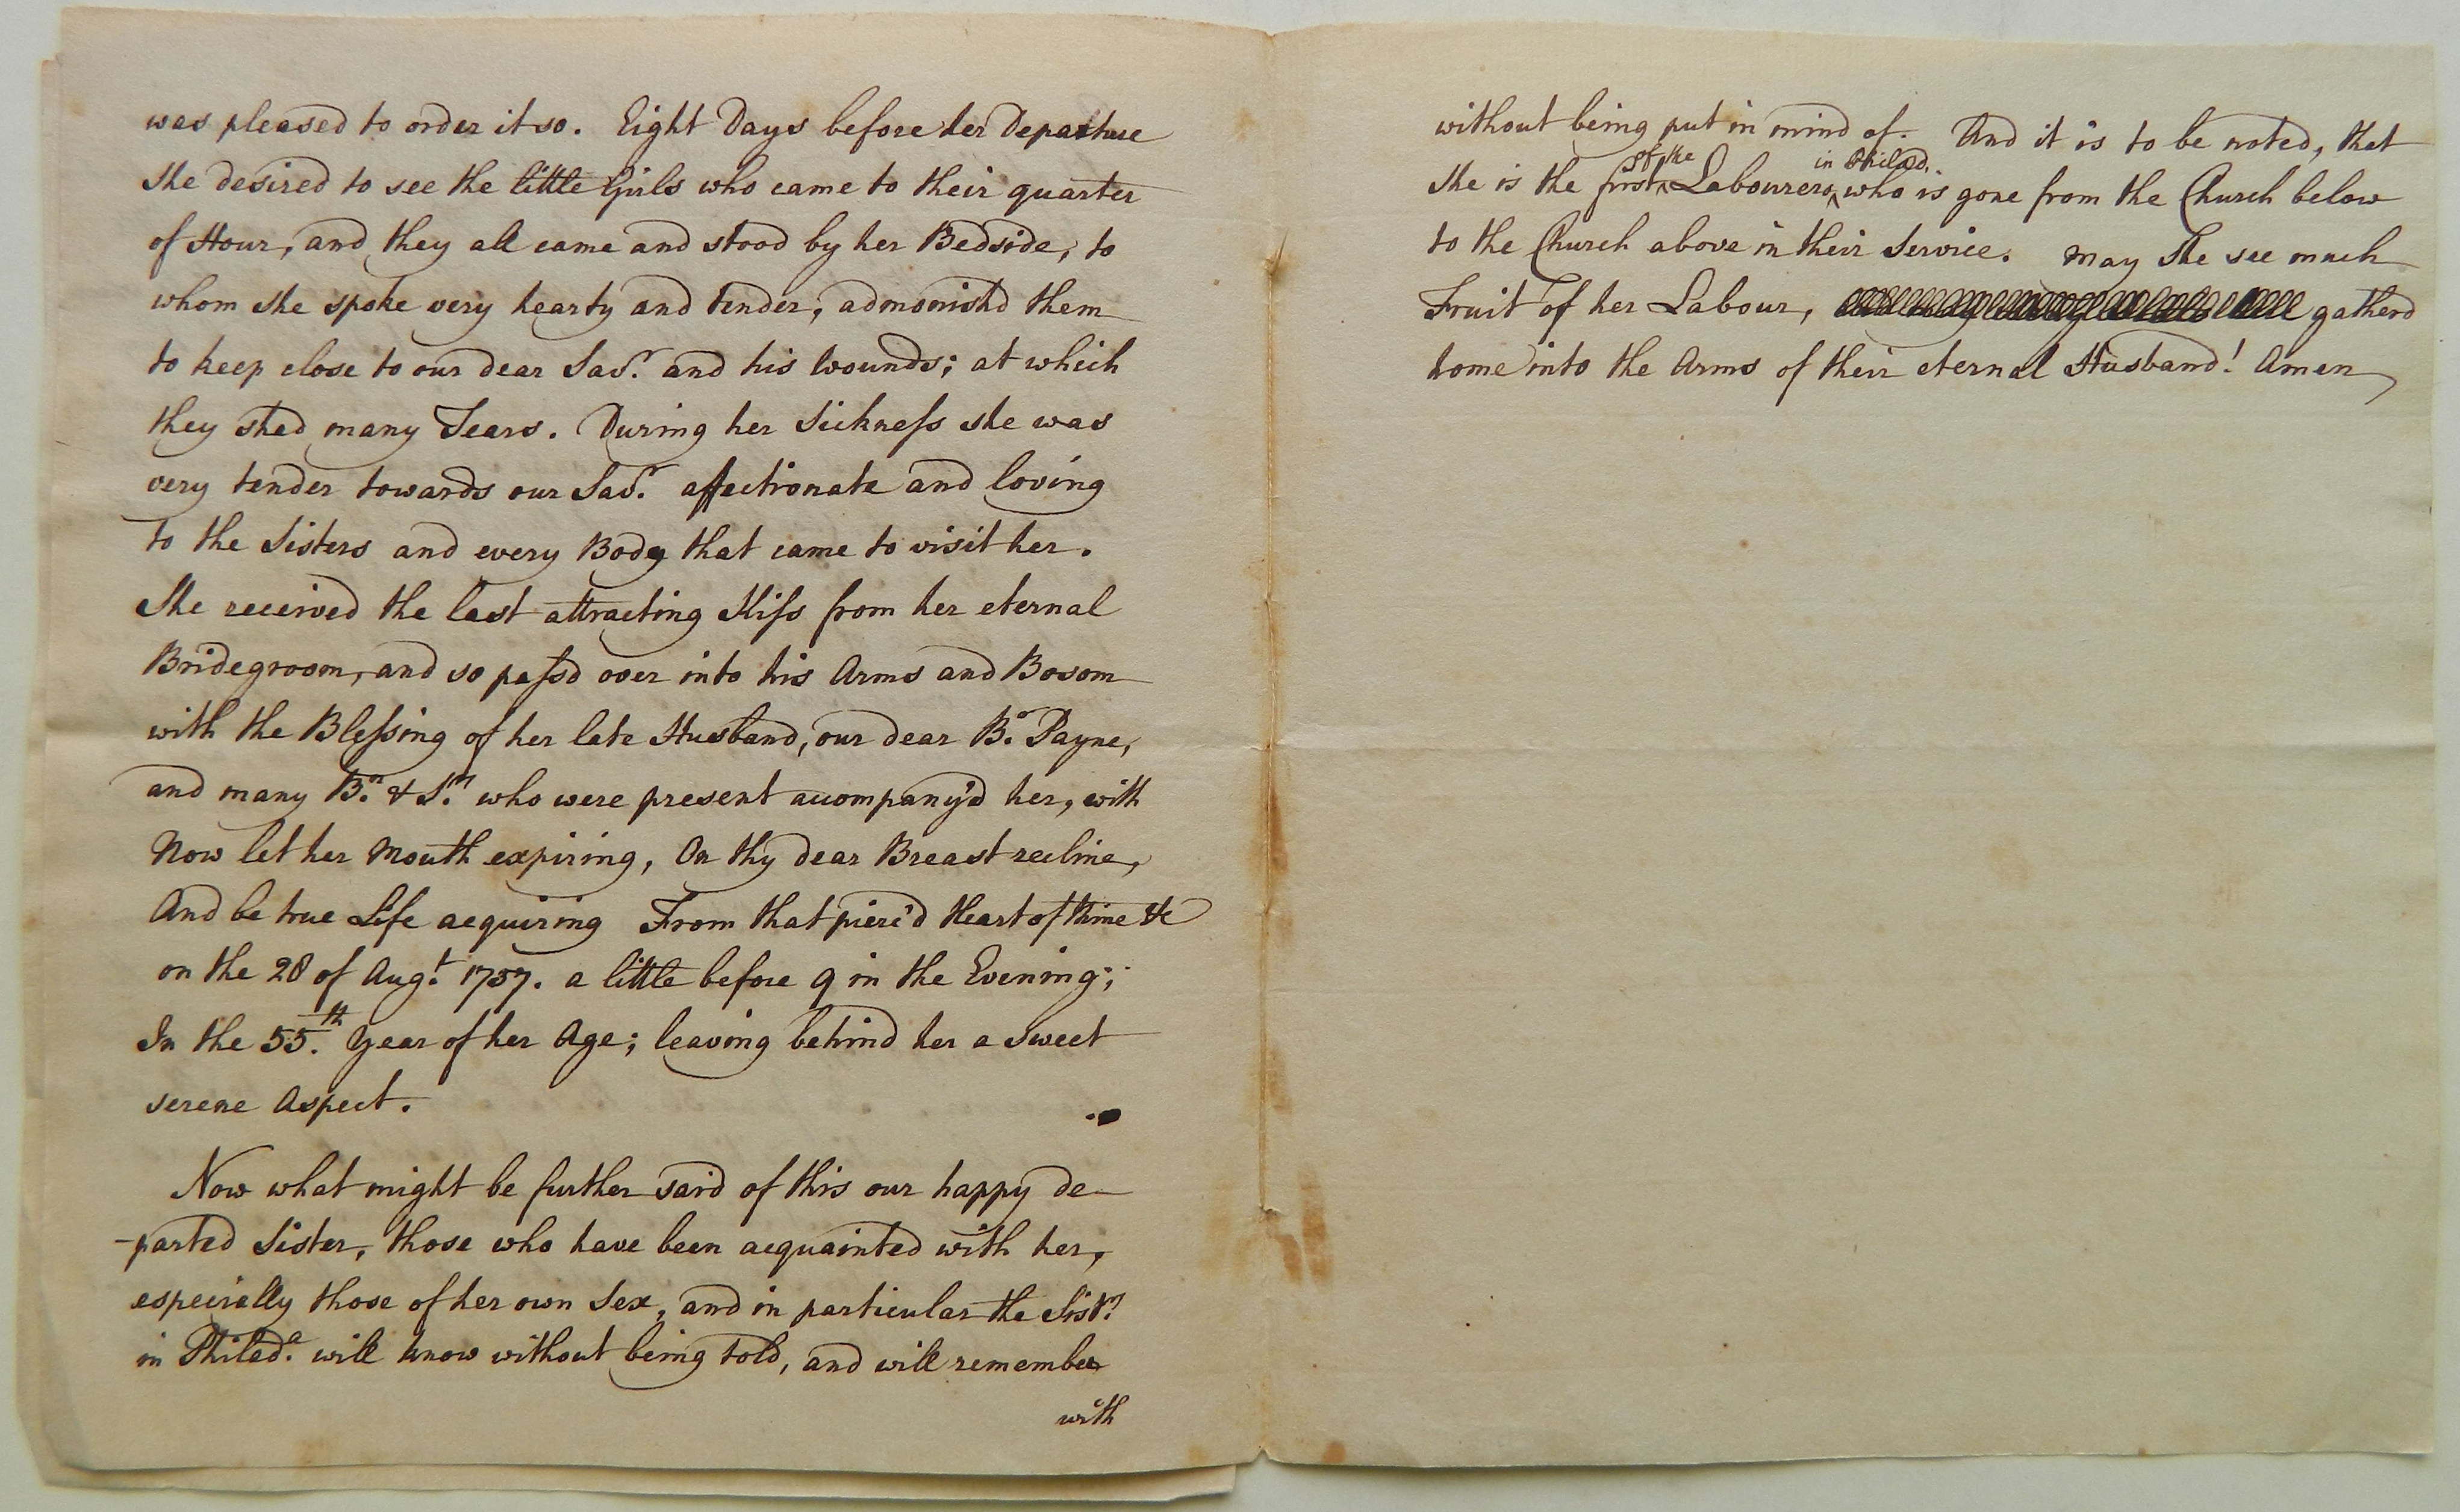 was pleased to order it so. Eight Days before her Departure
she desired to see the little Girls who came to their quarter
of Hour, and they all came and stood by her Bedside, to
whom she spoke very hearty and tender, admonishd them
to keep close to our dear Savr. and his Wounds; at which
they shed many Tears. During her Sickness she was
very tender towards our Savr. affectionate and loving
to the Sisters and every Body that came to visit her.
She received the last attracting Kiss from her eternal
Bridegroom, and so passd over into his Arms and Bosom
with the Blessing of her late Husband, our dear Br. Payne,
and many Brn. & Srn. who were present accompany'd her, with
Now let her Mouth expiring, On thy dear Breast recline,
And be true Life acquiring From that pierc'd Heart of thine &c
on the 28 of Augt. 1757. a little before 9 in the Evening;
In the 55th. Year of her Age; leaving behind her a Sweet
serene Aspect.
Now what might be further said of this our happy de-
-parted Sister, those who have been acquainted with her,
especially those of her own Sex, and in particular the Sistrs.
in Philada. will know without being told, and will remember
with
without being put in mind of. And it is to be noted, that
of the in Philad.
She is the first Labourers who is gone from the Church below
to the Church above in their Service. May She see much
Fruit of her Labour, gatherd
home into the Arms of their eternal Husband! Amen